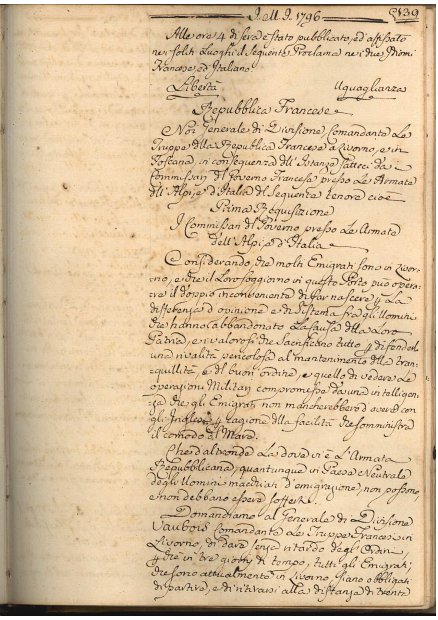 I. M. I. 1796
139
Alle ore 4 di sera è stato pubblicato, ed affissato
nei soliti Luoghi il seguente Proclama nei due Idiomi
Francese, ed Italiano
Libertà Uguaglianza
Repubblica Francese
Noi Generale di Divisione Comandante Le
Truppe della Repubblica Francese a Livorno, e in
Toscana, in conseguenza dell'Istanza fatteci da
Commissari del Governo Francese presso Le Armate
dell'Alpi, e d'Italia del seguente tenore cioè
Prima Requisizione
I Commissari del Governo presso Le Armate
dell'Alpi, e d'Italia
Considerando, che molti Emigrati sono in Livor=
no, e che il Loro soggiorno in questo Porto può opera=
re il doppio inconveniente di far nascere p La
differenza d'opinione, e di sistema fra gli Uomini
che hanno abbandonato La causa della Loro
Patria, e i valorosi che sacrificano tutto p difenderla
una rivalità pericolosa al mantenimento della tran=
quillità, e del buon ordine, e quello di vedere Le
operazioni Militari compromesse da una intelligen=
za che gli Emigrati non mancherebbero d'avere con
gl'Inglesi p ragione della facilità che somministra
il comodo del Mare.
Che d'altronde La dove vi è L'Armata
Repubblicana, quantunque in Paese Neutrale
degli Uomini macchiati d'emigrazione, non possono
e non debbano essere sofferti.
Domandiamo al Generale di Divisione
Vaubois Comandante Le Truppe Francesi in
Livorno, di dare senza ritardo degli Ordini
p che in tre giorni di tempo, tutti gli Emigrati
che sono attualmente in Livorno, siano obbligati
di partire, e di ritirarsi alla distanza di trenta